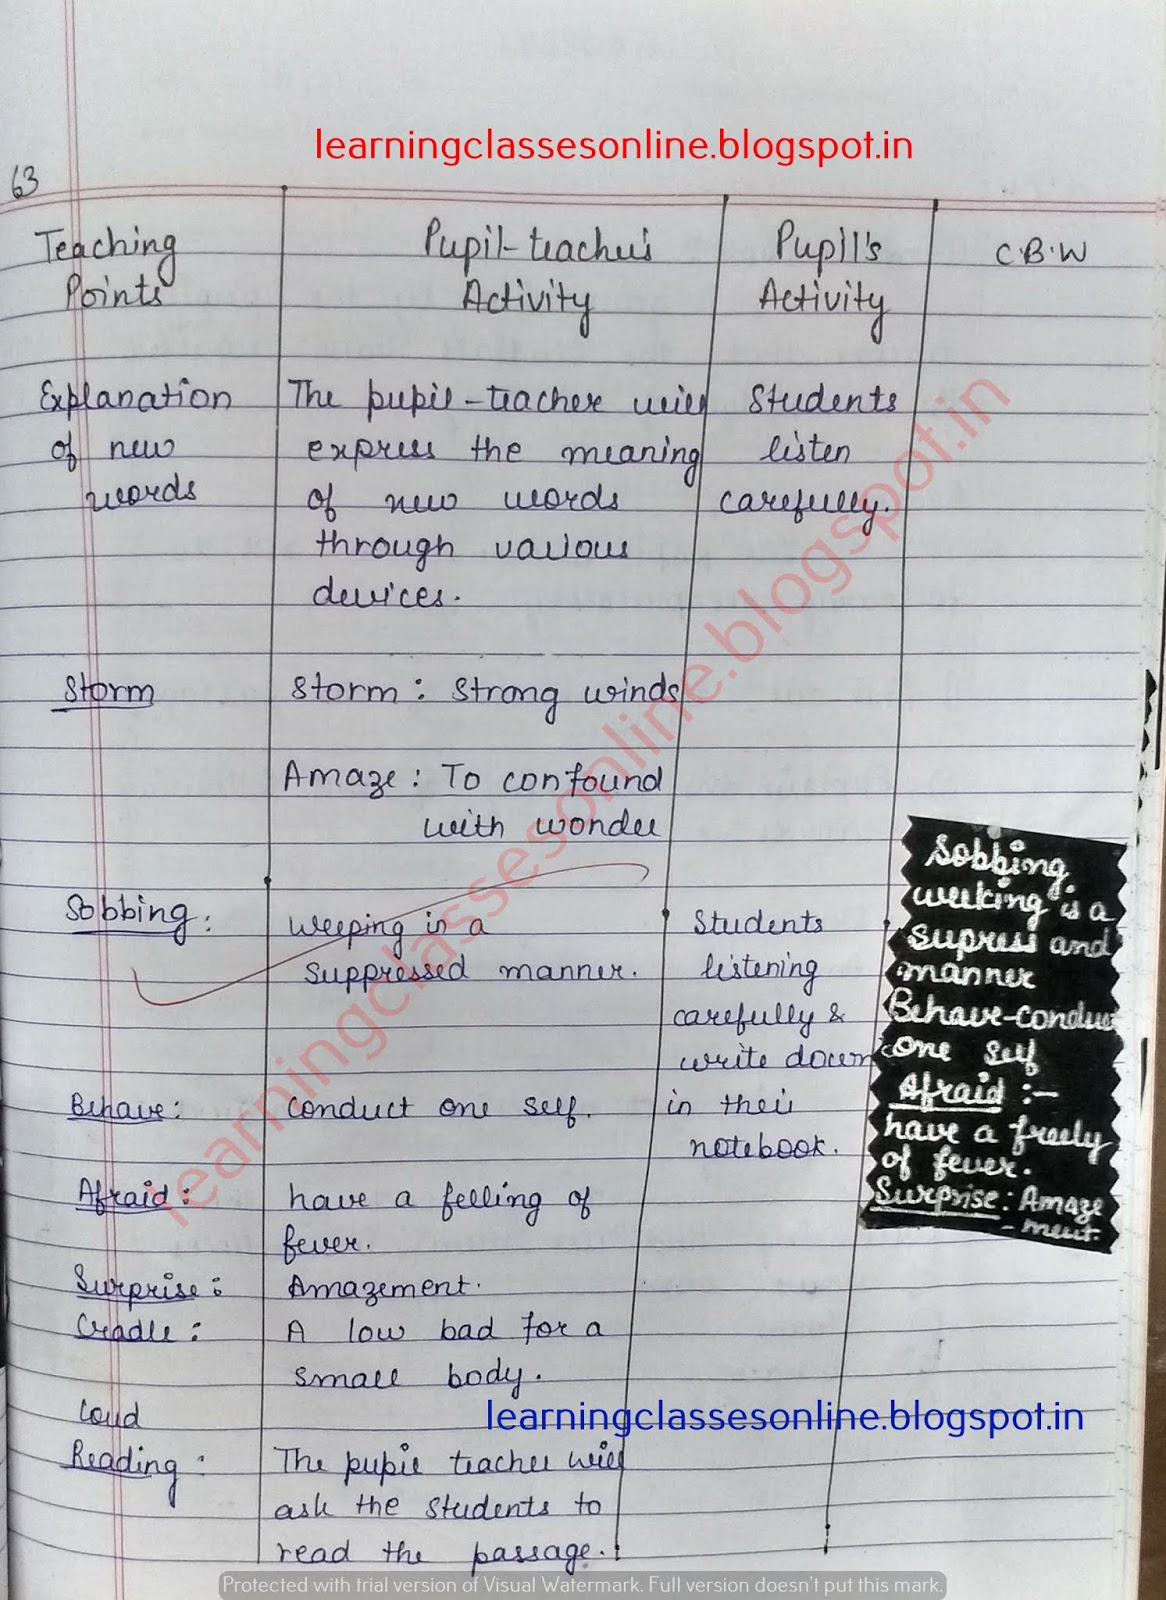 learningclassesonline.blogspot.in
63
Teaching Points
Pupil-teacher's Activity
Pupil's Activity
C.B.W
Explanation
of new
words
The pupil-teacher will
express the meaning
of new words
through various
devices.
Students
listen
carefully.
Storm
Storm : Strong winds
Amaze : To confound
with wonder
Sobbing :
Weeping in a
suppressed manner.
Students
listening
carefully &
write down
in their
notebook.
Behave :
Conduct one self.
Afraid :
have a felling of
fever.
Surprise :
Amazement.
Cradle :
A low bad for a
small body.
Loud
Reading :
The pupil teacher will
ask the students to
read the passage.
Sobbing.
weeking is a
supress and
manner
Behave-conduct
one self
Afraid :-
have a freely
of fever.
Surprise : Amaze
-ment.
learningclassesonline.blogspot.in
learningclassesonline.blogspot.in
Protected with trial version of Visual Watermark. Full version doesn't put this mark.